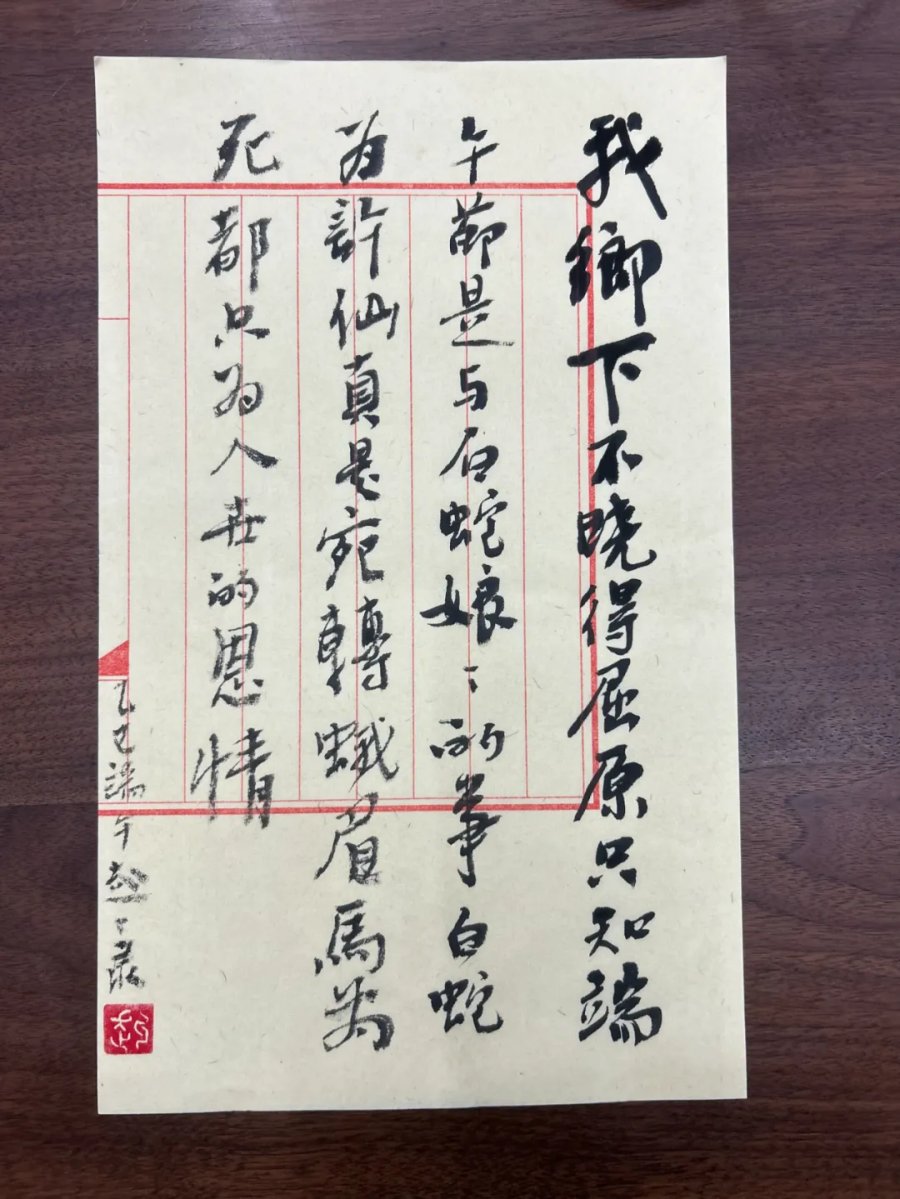 我鄉下不曉得屈原只知端
午節是与白蛇娘〻事白蛇
为許仙真是宛轉蛾眉馬前
死都只为人世的恩情
乙巳端午录